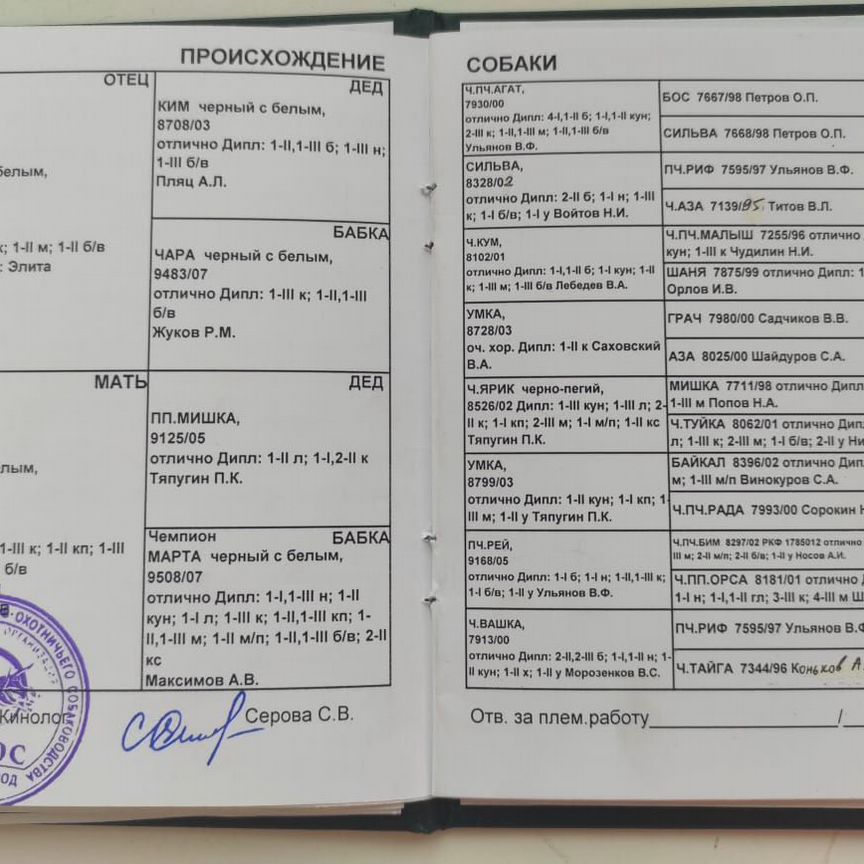 ПРОИСХОЖДЕНИЕ
ОТЕЦ
белым,
1-II м; 1-II б/в
: Элита
ДЕД
КИМ черный с белым,
8708/03
отлично Дипл: 1-II,1-III б; 1-III н;
1-III б/в
Пляц А.Л.
БАБКА
ЧАРА черный с белым,
9483/07
отлично Дипл: 1-III к; 1-II,1-III
б/в
Жуков Р.М.
МАТЬ
1-III к; 1-II кп; 1-III
б/в
ДЕД
ПП.МИШКА,
9125/05
отлично Дипл: 1-II л; 1-I,2-II к
Тяпугин П.К.
Чемпион БАБКА
МАРТА черный с белым,
9508/07
отлично Дипл: 1-I,1-III н; 1-II
кун; 1-I л; 1-III к; 1-II,1-III кп; 1-
II,1-III м; 1-II м/п; 1-II,1-III б/в; 2-II
кс
Максимов А.В.
ОХОТНИЧЬЕГО СОБАКОВОДСТВА
Кинолог Серова С.В.
СОБАКИ
Ч.ПЧ.АГАТ,
7930/00
отлично Дипл: 4-I,1-II б; 1-I,1-II кун;
2-III к; 1-II,1-III м; 1-II,1-III б/в
Ульянов В.Ф.
БОС 7667/98 Петров О.П.
СИЛЬВА 7668/98 Петров О.П.
СИЛЬВА,
8328/02
отлично Дипл: 2-II б; 1-I н; 1-III
к; 1-I б/в; 1-I у Войтов Н.И.
ПЧ.РИФ 7595/97 Ульянов В.Ф.
Ч.АЗА 7139/95 Титов В.Л.
Ч.КУМ,
8102/01
отлично Дипл: 1-I,1-II б; 1-I кун; 1-II
к; 1-III м; 1-III б/в Лебедев В.А.
Ч.ПЧ.МАЛЫШ 7255/96 отлично
кун; 1-III к Чудилин Н.И.
ШАНЯ 7875/99 отлично Дипл: 1
Орлов И.В.
УМКА,
8728/03
оч. хор. Дипл: 1-II к Саховский
В.А.
ГРАЧ 7980/00 Садчиков В.В.
АЗА 8025/00 Шайдуров С.А.
Ч.ЯРИК черно-пегий,
8526/02 Дипл: 1-III кун; 1-III л; 2-
II к; 1-I кп; 2-III м; 1-I м/п; 1-II кс
Тяпугин П.К.
МИШКА 7711/98 отлично Дипл
1-III м Попов Н.А.
Ч.ТУЙКА 8062/01 отлично Дип
л; 1-III к; 2-III м; 1-I б/в; 2-II у Ни
УМКА,
8799/03
отлично Дипл: 1-II кун; 1-I кп; 1-
III м; 1-II у Тяпугин П.К.
БАЙКАЛ 8396/02 отлично Дип
м; 1-III м/п Винокуров С.А.
Ч.ПЧ.РАДА 7993/00 Сорокин Н
ПЧ.РЕЙ,
9168/05
отлично Дипл: 1-I б; 1-I н; 1-II,1-III к;
1-I б/в; 1-II у Ульянов В.Ф.
Ч.ПЧ.БИМ 8297/02 РКФ 1785012 отлично
III м; 2-II м/п; 2-II б/в; 1-II у Носов А.И.
Ч.ПП.ОРСА 8181/01 отлично
1-I н; 1-I,1-II гл; 3-III к; 4-III м Ш
Ч.ВАШКА,
7913/00
отлично Дипл: 2-II,2-III б; 1-I,1-II н; 1-
II кун; 1-II х; 1-II у Морозенков В.С.
ПЧ.РИФ 7595/97 Ульянов В.Ф
Ч.ТАЙГА 7344/96 Коньков А.
Отв. за плем.работу /